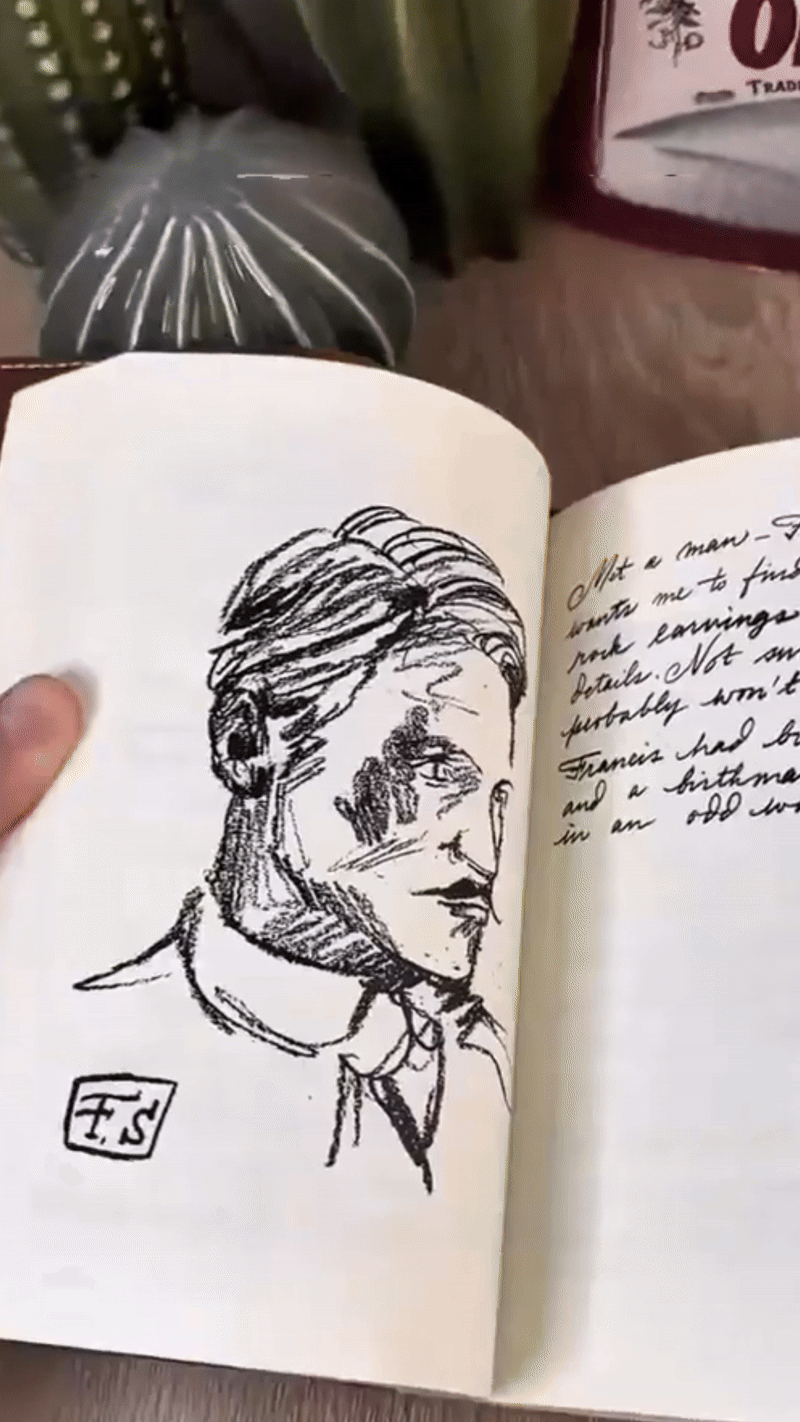 TRADI
F.S
Met a man — F
wants me to find
rock carvings
details. Not su
probably won't
Francis had b
and a birthma
in an odd wa